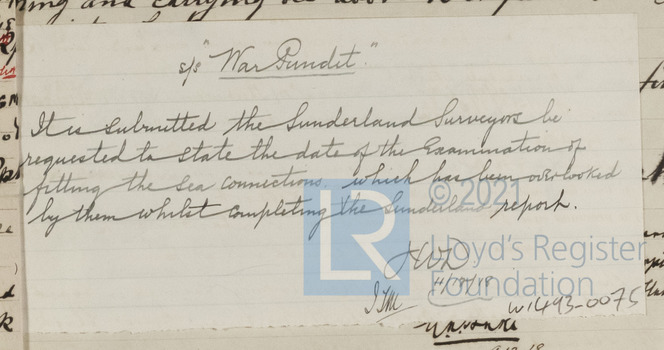 s/s "War Pundit."
It is submitted the Sunderland Surveyors be
requested to state the date of the Examination of
fitting the Sea connections which has been overlooked
by them whilst completing the Sunderland report.
© 2021
LR
Lloyd's Register
Foundation
W1493-0075